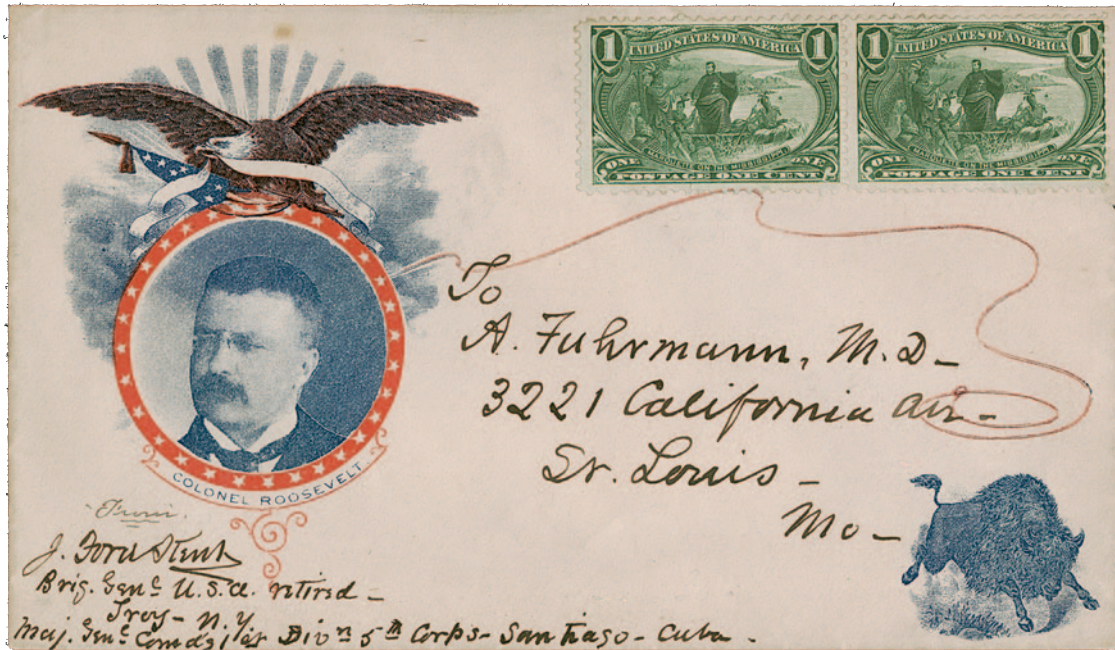 1 UNITED STATES OF AMERICA 1
MARQUETTE ON THE MISSISSIPPI.
ONE ONE
POSTAGE ONE CENT
1 UNITED STATES OF AMERICA 1
MARQUETTE ON THE MISSISSIPPI.
ONE ONE
POSTAGE ONE CENT
COLONEL ROOSEVELT.
To
A. Fuhrmann, M.D–
3221 California Av–
St. Louis –
Mo –
From.
J. Ford Kent
Brig. Genl U.S.A. retired –
Troy – N.Y.
Maj. Genl Comd'g 1st Divn 5th Corps – Santiago – Cuba.